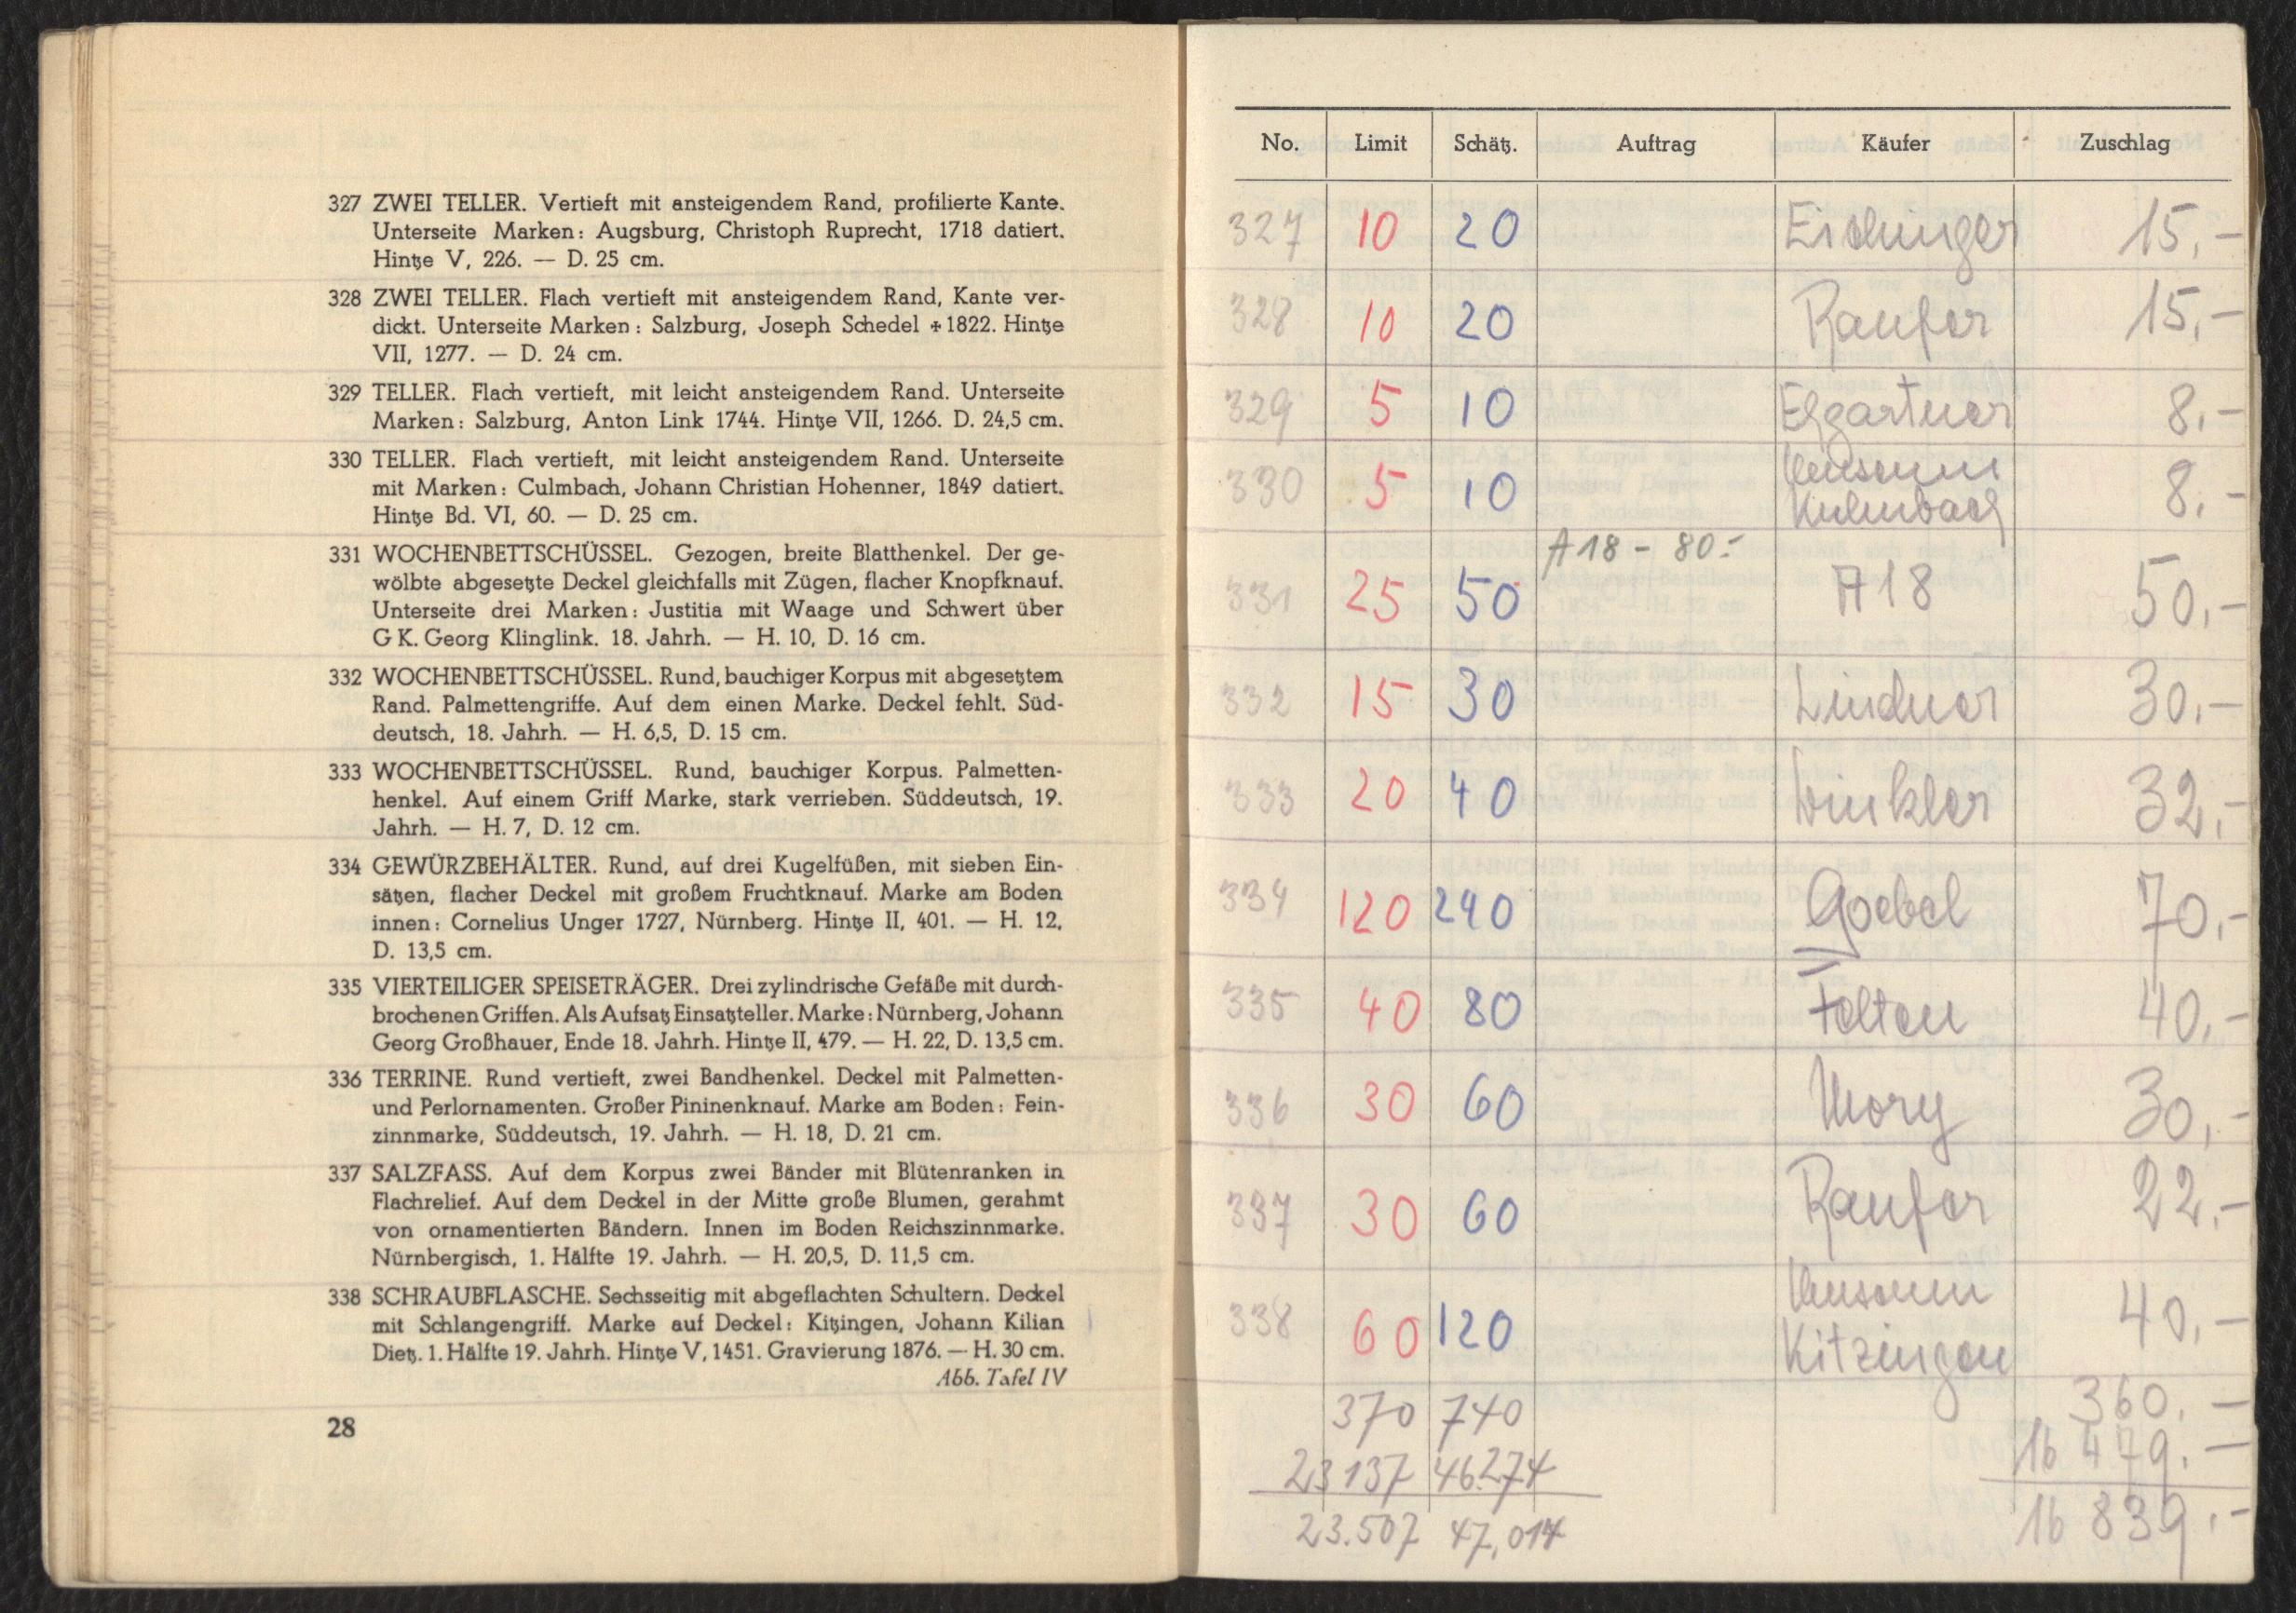 327 ZWEI TELLER. Vertieft mit ansteigendem Rand, profilierte Kante.
Unterseite Marken: Augsburg, Christoph Ruprecht, 1718 datiert.
Hintze V, 226. — D. 25 cm.
328 ZWEI TELLER. Flach vertieft mit ansteigendem Rand, Kante ver-
dickt. Unterseite Marken: Salzburg, Joseph Schedel + 1822. Hintze
VII, 1277. — D. 24 cm.
329 TELLER. Flach vertieft, mit leicht ansteigendem Rand. Unterseite
Marken: Salzburg, Anton Link 1744. Hintze VII, 1266. D. 24,5 cm.
330 TELLER. Flach vertieft, mit leicht ansteigendem Rand. Unterseite
mit Marken: Culmbach, Johann Christian Hohenner, 1849 datiert.
Hintze Bd. VI, 60. — D. 25 cm.
331 WOCHENBETTSCHÜSSEL. Gezogen, breite Blatthenkel. Der ge-
wölbte abgesetzte Deckel gleichfalls mit Zügen, flacher Knopfknauf.
Unterseite drei Marken: Justitia mit Waage und Schwert über
G K. Georg Klinglink. 18. Jahrh. — H. 10, D. 16 cm.
332 WOCHENBETTSCHÜSSEL. Rund, bauchiger Korpus mit abgesetztem
Rand. Palmettengriffe. Auf dem einen Marke. Deckel fehlt. Süd-
deutsch, 18. Jahrh. — H. 6,5, D. 15 cm.
333 WOCHENBETTSCHÜSSEL. Rund, bauchiger Korpus. Palmetten-
henkel. Auf einem Griff Marke, stark verrieben. Süddeutsch, 19.
Jahrh. — H. 7, D. 12 cm.
334 GEWÜRZBEHÄLTER. Rund, auf drei Kugelfüßen, mit sieben Ein-
sätzen, flacher Deckel mit großem Fruchtknauf. Marke am Boden
innen: Cornelius Unger 1727, Nürnberg. Hintze II, 401. — H. 12,
D. 13,5 cm.
335 VIERTEILIGER SPEISETRÄGER. Drei zylindrische Gefäße mit durch-
brochenen Griffen. Als Aufsatz Einsatzteller. Marke: Nürnberg, Johann
Georg Großhauer, Ende 18. Jahrh. Hintze II, 479. — H. 22, D. 13,5 cm.
336 TERRINE. Rund vertieft, zwei Bandhenkel. Deckel mit Palmetten-
und Perlornamenten. Großer Pininenknauf. Marke am Boden: Fein-
zinnmarke, Süddeutsch, 19. Jahrh. — H. 18, D. 21 cm.
337 SALZFASS. Auf dem Korpus zwei Bänder mit Blütenranken in
Flachrelief. Auf dem Deckel in der Mitte große Blumen, gerahmt
von ornamentierten Bändern. Innen im Boden Reichszinnmarke.
Nürnbergisch, 1. Hälfte 19. Jahrh. — H. 20,5, D. 11,5 cm.
338 SCHRAUBFLASCHE. Sechsseitig mit abgeflachten Schultern. Deckel
mit Schlangengriff. Marke auf Deckel: Kitzingen, Johann Kilian
Dietz. 1. Hälfte 19. Jahrh. Hintze V, 1451. Gravierung 1876. — H. 30 cm.
Abb. Tafel IV
28
No. Limit Schätz. Auftrag Käufer Zuschlag
327 10 20 Eichinger 15,-
328 10 20 Raufer 15,-
329 5 10 Elgartner 8,-
330 5 10 Museum Kulmbach 8,-
A 18 - 80.-
331 25 50 A 18 50,-
332 15 30 Lindner 30,-
333 20 40 Winkler 32,-
334 120 240 Goebel 70,-
335 40 80 Felten 40,-
336 30 60 Mory 30,-
337 30 60 Raufer 22,-
338 60 120 Museum Kitzingen 40,-
370 740 360,-
23137 46.274 16 479.-
23.507 47,014 16 839.-